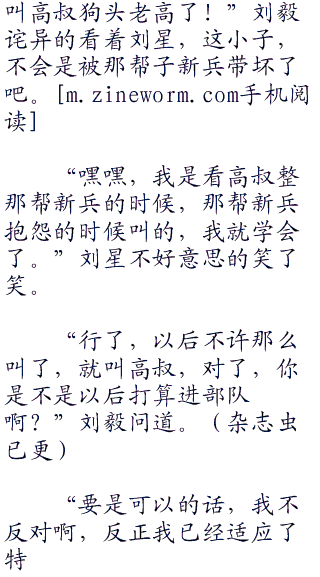 叫高叔狗头老高了！”刘毅
诧异的看着刘星，这小子，
不会是被那帮子新兵带坏了
吧。[m.zineworm.com手机阅
读]
“嘿嘿，我是看高叔整
那帮新兵的时候，那帮新兵
抱怨的时候叫的，我就学会
了。”刘星不好意思的笑了
笑。
“行了，以后不许那么
叫了，就叫高叔，对了，你
是不是以后打算进部队
啊？”刘毅问道。（杂志虫
已更）
“要是可以的话，我不
反对啊，反正我已经适应了
特